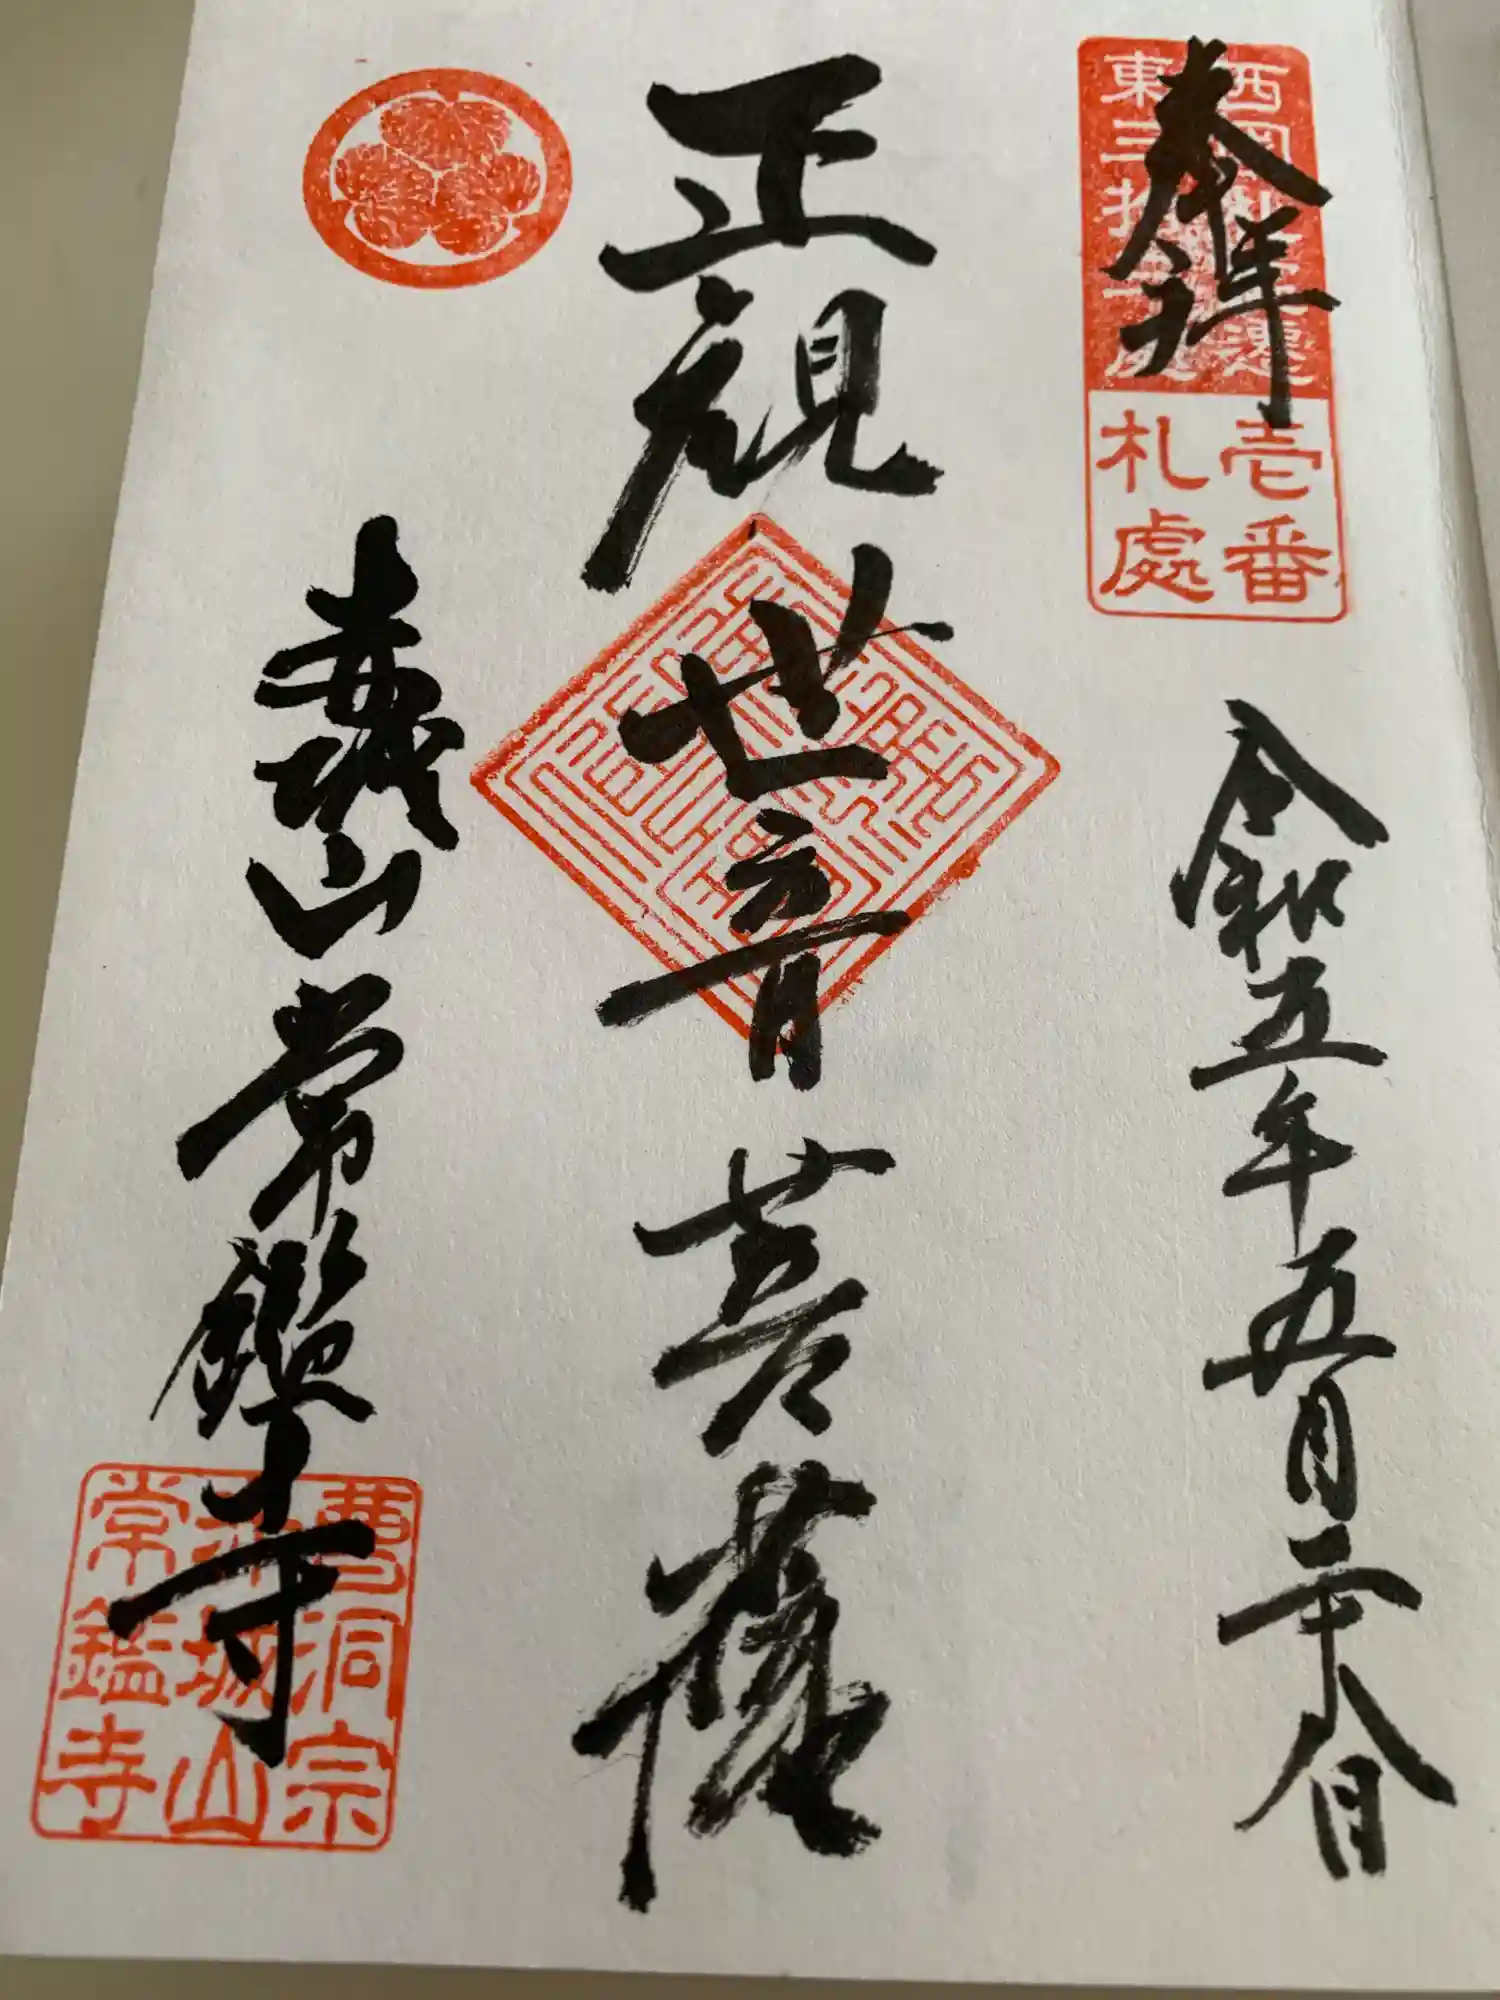 奉拝
壱番
札處
令和五年五月二十八日
正観世音菩薩
赤城山常鑑寺
曹洞宗
赤城山
常鑑寺